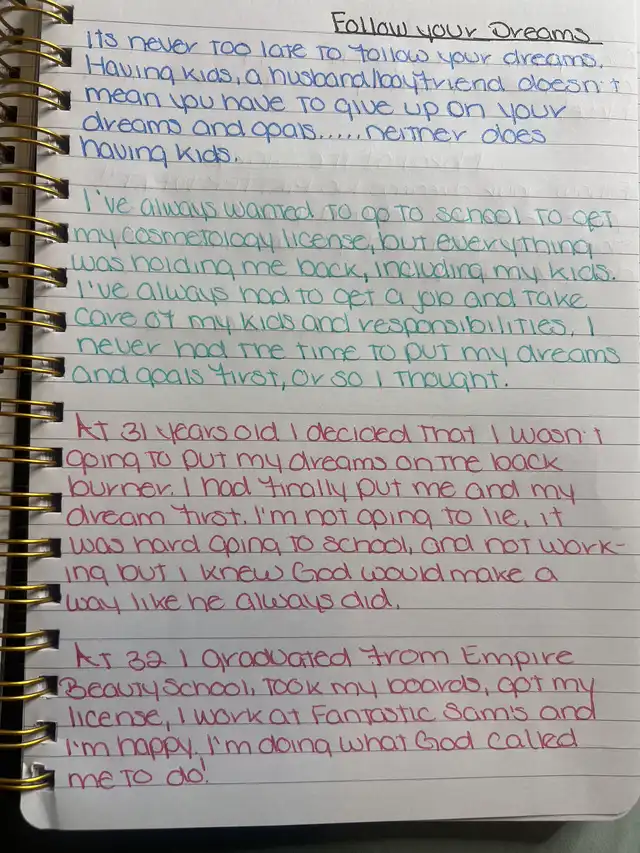 Follow your Dreams
Its never too late to follow your dreams.
Having kids, a husband/boyfriend doesn't
mean you have to give up on your
dreams and goals.....neither does
having kids.
I've always wanted to go to school to get
my cosmetology license, but everything
was holding me back, including my kids.
I've always had to get a job and take
care of my kids and responsibilities. I
never had the time to put my dreams
and goals first, or so I thought.
At 31 years old I decided that I wasn't
going to put my dreams on the back
burner. I had finally put me and my
dream first. I'm not going to lie, it
was hard going to school, and not work-
ing but I knew God would make a
way like he always did.
At 32 I graduated from Empire
Beauty School, took my boards, got my
license, I work at Fantastic Sam's and
I'm happy. I'm doing what God called
me to do!